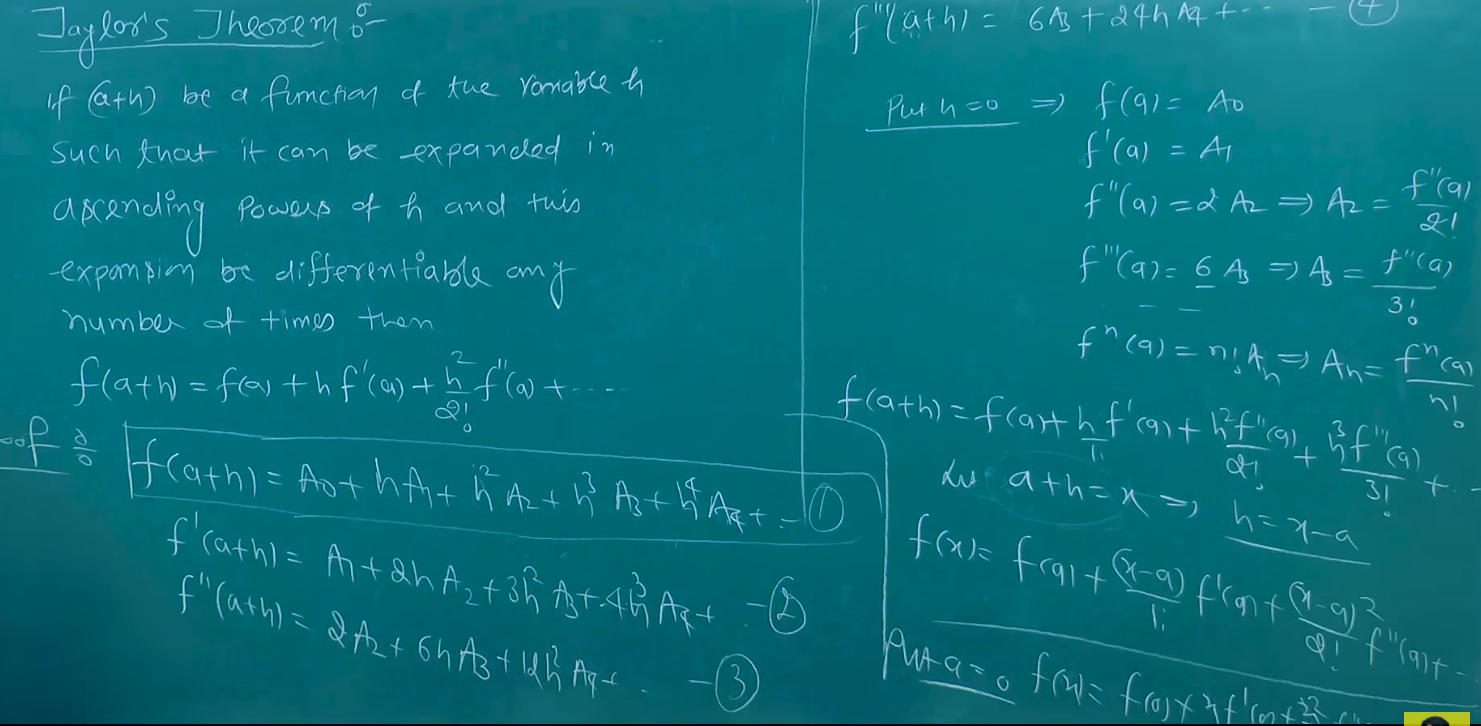 Taylor's Theorem :-
if (a+h) be a function of the variable h
such that it can be expanded in
ascending powers of h and this
expansion be differentiable any
number of times then
f(a+h) = f(a) + h f'(a) + h²/2! f''(a) + .....
oof :-
f(a+h) = A₀ + hA₁ + h²A₂ + h³A₃ + h⁴A₄ + .. ①
f'(a+h) = A₁ + 2hA₂ + 3h²A₃ + 4h³A₄ + .. - ②
f''(a+h) = 2A₂ + 6hA₃ + 12h²A₄ + .. - ③
f'''(a+h) = 6A₃ + 24hA₄ + ... - ④
Put h=0 ⇒ f(a) = A₀
f'(a) = A₁
f''(a) = 2A₂ ⇒ A₂ = f''(a)/2!
f'''(a) = 6A₃ ⇒ A₃ = f'''(a)/3!
fⁿ(a) = n!Aₙ ⇒ Aₙ = fⁿ(a)/n!
f(a+h) = f(a) + h/1! f'(a) + h²f''(a)/2! + h³f'''(a)/3! + ..
Let a+h=x ⇒ h=x-a
f(x) = f(a) + (x-a)/1! f'(a) + (x-a)²/2! f''(a) + ..
Put a=0 f(x) = f(0) + x f'(0) +